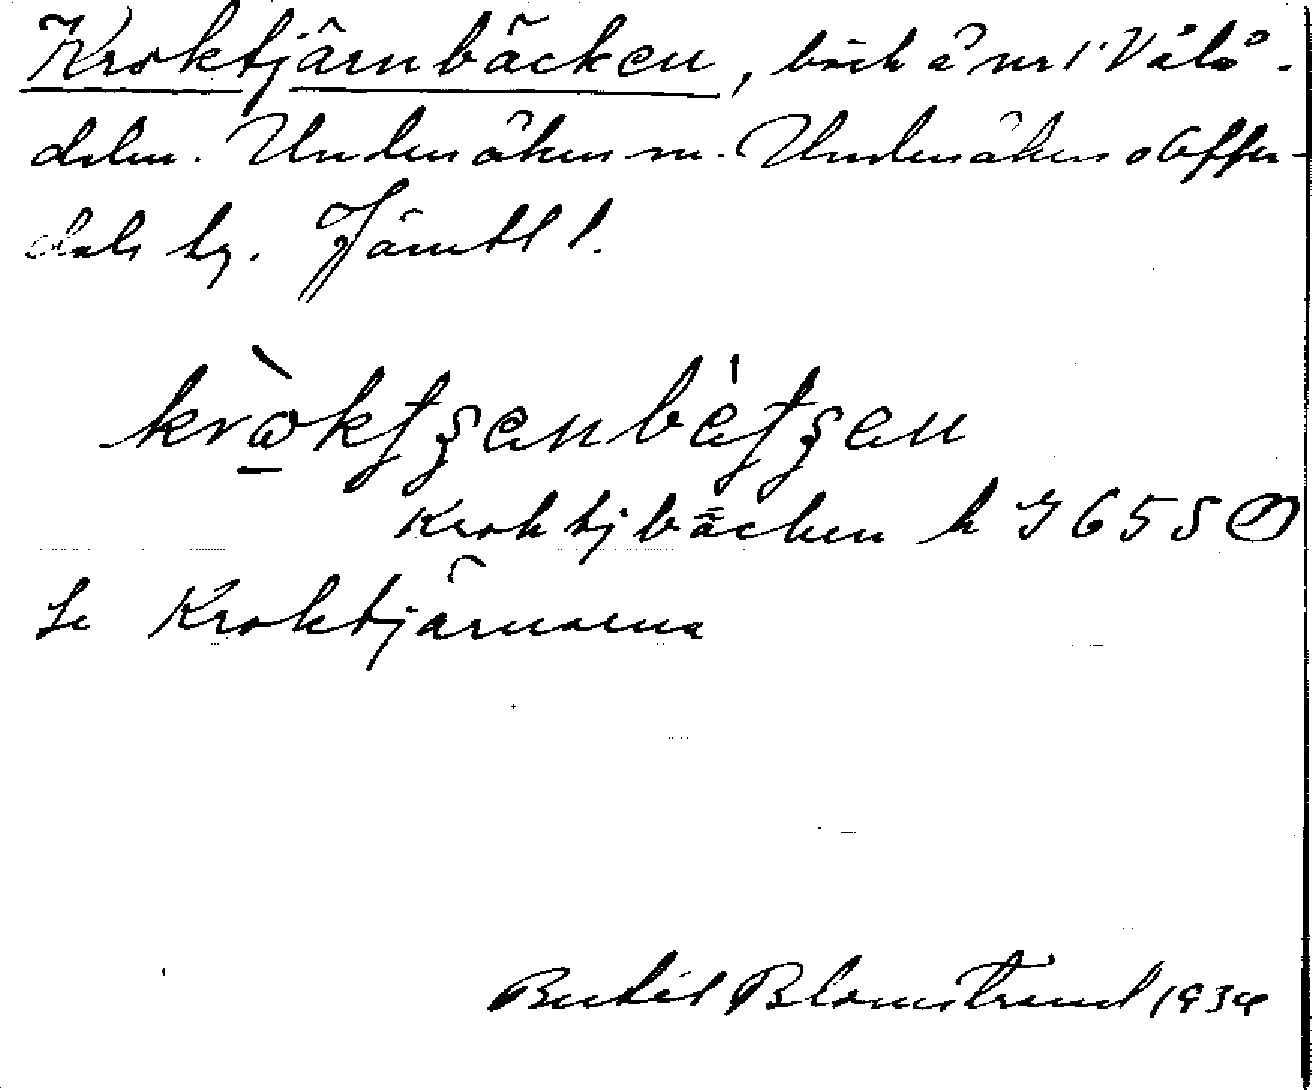 Kroktjärnbäcken, bäck å nr 1 Vålå-
dalen. Undersåkers sn. Undersåkers o Offer-
dals tg. Jämtl l.
Kroktjbäcken k 9655
Se Kroktjärnarna
Bertil Blomstrand 1934